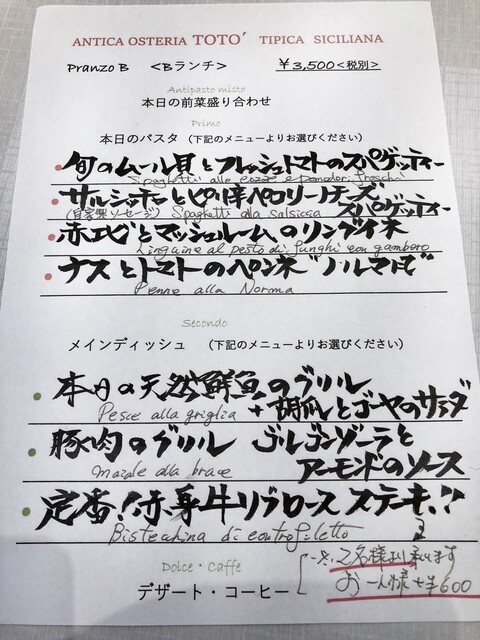 ANTICA OSTERIA TOTO´ TIPICA SICILIANA
Pranzo B <Bランチ> ￥3,500<税別>
Antipasto misto
本日の前菜盛り合わせ
Primo
本日のパスタ (下記のメニューよりお選びください)
旬のムール貝とフレッシュトマトのスパゲッティー
Spaghetti alle cozze e pomodori freschi
サルシッチャとピリ辛ペコリーノチーズ
(自家製ソーセージ) Spaghetti alla salsicca スパゲッティー
赤エビとマッシュルームのリングイネ
Linguine al pesto di funghi con gambero
ナスとトマトのペンネ"ノルマ風"
Penne alla Norma
Secondo
メインディッシュ (下記のメニューよりお選びください)
本日の天然鮮魚のグリル
Pesce alla griglia + 胡瓜とゴーヤのサラダ
豚肉のグリル ゴルゴンゾーラと
maiale alla brace アーモンドのソース
定番!!赤身牛リブロース ステーキ!!
Bistecchina di controfiletto
※2名様より承ります
Dolce・Caffe
お一人様+¥600
デザート・コーヒー